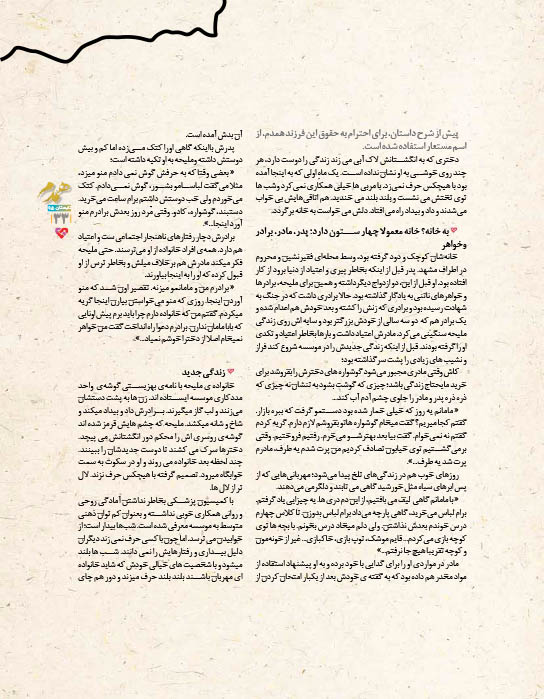 پیش از شرح داستان، برای احترام به حقوق این فرزند همدم، از
اسم مستعار استفاده شده است.
دختری که به انگشتانش لاک آبی می زند زندگی را دوست دارد، هر
چند روی خوشی به او نشان نداده است. یک ماه اولی که به اینجا آمده
بود با هیچکس حرف نمی‌زد. با مربی ها خیلی همکاری نمی کرد و شب ها
توی تختش می نشست و بلند بلند می خندید. هم اتاقی‌هایش بی خواب
می‌شدند و داد و بیداد راه می‌افتاد. دلش می خواست به خانه برگردد.
به خانه؟ خانه معمولا چهار ستون دارد: پدر، مادر، برادر
وخواهر
خانه‌شان کوچک و دود گرفته بود، وسط محله‌ای فقیرنشین و محروم
در اطراف مشهد. پدر قبل از اینکه بخاطر پیری و اعتیاد از دنیا برود از کار
افتاده بود. او قبل از این، دو ازدواج دیگر داشته و همین برای ملیحه، برادرها
و خواهرهای ناتنی به یادگار گذاشته بود. حالا برادری داشت که در جنگ به
شهادت رسیده بود و برادری که زنش را کشته و بعد خودش هم اعدام شده و
یک برادر هم که دو سه سالی از خودش بزرگتر بود و سایه اش روی زندگی
ملیحه سنگینی می‌کرد. مادرش اعتیاد داشت و بارها بخاطر اعتیاد و تکدی
او را گرفته بودند. قبل از اینکه زندگی جدیدش را در موسسه شروع کند فراز
و نشیب های زیادی را پشت سر گذاشته بود؛
کاش وقتی مادری مجبور می‌شود گوشواره های دخترش را بفروشد برای
خرید مایحتاج زندگی باشد؛ چیزی که گوشت بشود به تنشان نه چیزی که
ذره ذره پدر و مادر را جلوی چشم آدم آب کند...
«مامانم یه روز که خیلی خمار شده بود دستمو گرفت که ببره بازار.
گفتم کجا میریم؟ گفت میخام گوشواره هاتو بفروشم لازم دارم. گریه کردم
گفتم نه نمی‌خوام. گفت بیا بعد بهترشو می‌خرم. رفتیم فروختیم. وقتی
برمی‌گشتیم توی خیابون تصادف کردیم من پرت شدم یه طرف، مادرم
پرت شد یه طرف..»
روزهای خوب هم در زندگی‌های تلخ پیدا می‌شود؛ مهربانی‌هایی که از
پس ابرهای سیاه مثل خورشید گاهی می تابند و دلگرمی می‌دهند.
«با مامانم گاهی لیف می‌بافتیم، از این دم دری ها. یه چیزایی یاد گرفتم.
برام لباس می‌خرید، گاهی پارچه می‌داد برام لباس بدوزن. تا کلاس چهارم
درس خوندم بعدش نذاشتن. ولی دلم میخاد درس بخونم. با بچه ها توی
کوچه بازی می‌کردم... قایم موشک، توپ بازی، خاکبازی.. غیر از خونه‌مون
و کوچه تقریبا هیچ جا نرفتم..»
مادر در مواردی او را برای گدایی با خود برده و به او پیشنهاد استفاده از
مواد مخدر هم داده بود که به گفته ی خودش بعد از یکبار امتحان کردن از
آن بدش آمده است.
پدرش با اینکه گاهی او را کتک می‌زده اما کم و بیش
دوستش داشته و ملیحه به او تکیه داشته است؛
«بعضی وقتا که به حرفش گوش نمی دادم منو میزد،
مثلا می‌گفت لباسامو بشور، گوش نمی‌دادم. کتک
می‌خوردم ولی خب دوستش داشتم برام ساعت می‌خرید.
دستبند، گوشواره، کادو. وقتی مُرد روز بعدش برادرم منو
آورد اینجا..».
برادرش دچار رفتارهای ناهنجار اجتماعی ست و اعتیاد
هم دارد. همه‌ی افراد خانواده از او می‌ترسند. حتی ملیحه
فکر میکند مادرش هم برخلاف میلش و بخاطر ترس از او
قبول کرده که او را به اینجا بیاورند.
«برادرم من و مامانمو میزنه. تقصیر اون شد که منو
آوردن اینجا. روزی که منو می‌خواستن بیارن اینجا گریه
میکردم. گفتم من که خانواده دارم چرا باید برم پیش اونایی
که بابا مامان ندارن. برادرم دعوا راه انداخت گفت من خواهر
نمیخام اصلا از دخترا خوشم نمیاد..».
زندگی جدید
خانواده ی ملیحه با نامه‌ی بهزیستی گوشه‌ی واحد
مددکاری موسسه ایستاده اند. زن ها به پشت دستشان
می‌زنند و لب گاز میگیرند. برادرش داد و بیداد میکند و
شاخ و شانه میکشد. ملیحه که چشم هایش قرمز شده اند
گوشه‌ی روسری اش را محکم دور انگشتانش می پیچد.
دخترها سرک می کشند تا دوست جدیدشان را ببینند.
چند لحظه بعد خانواده می روند و او در سکوت به سمت
خوابگاه میرود. تصمیم گرفته با هیچکس حرف نزند. لال
تر از لال ها.
با کمیسیون پزشکی بخاطر نداشتن آمادگی روحی
و روانی همکاری خوبی نداشته و بعنوان کم توان ذهنی
متوسط به موسسه معرفی شده است. شب‌ها بیدار است؛ از
خوابیدن می ترسد. اما چون با کسی حرف نمی زند دیگران
دلیل بیداری و رفتارهایش را نمی دانند. شب ها بلند
میشود و با شخصیت های خیالی خودش که شاید خانواده
ای مهربان باشند بلند بلند حرف میزند و دور هم چای
همدم
۳۳